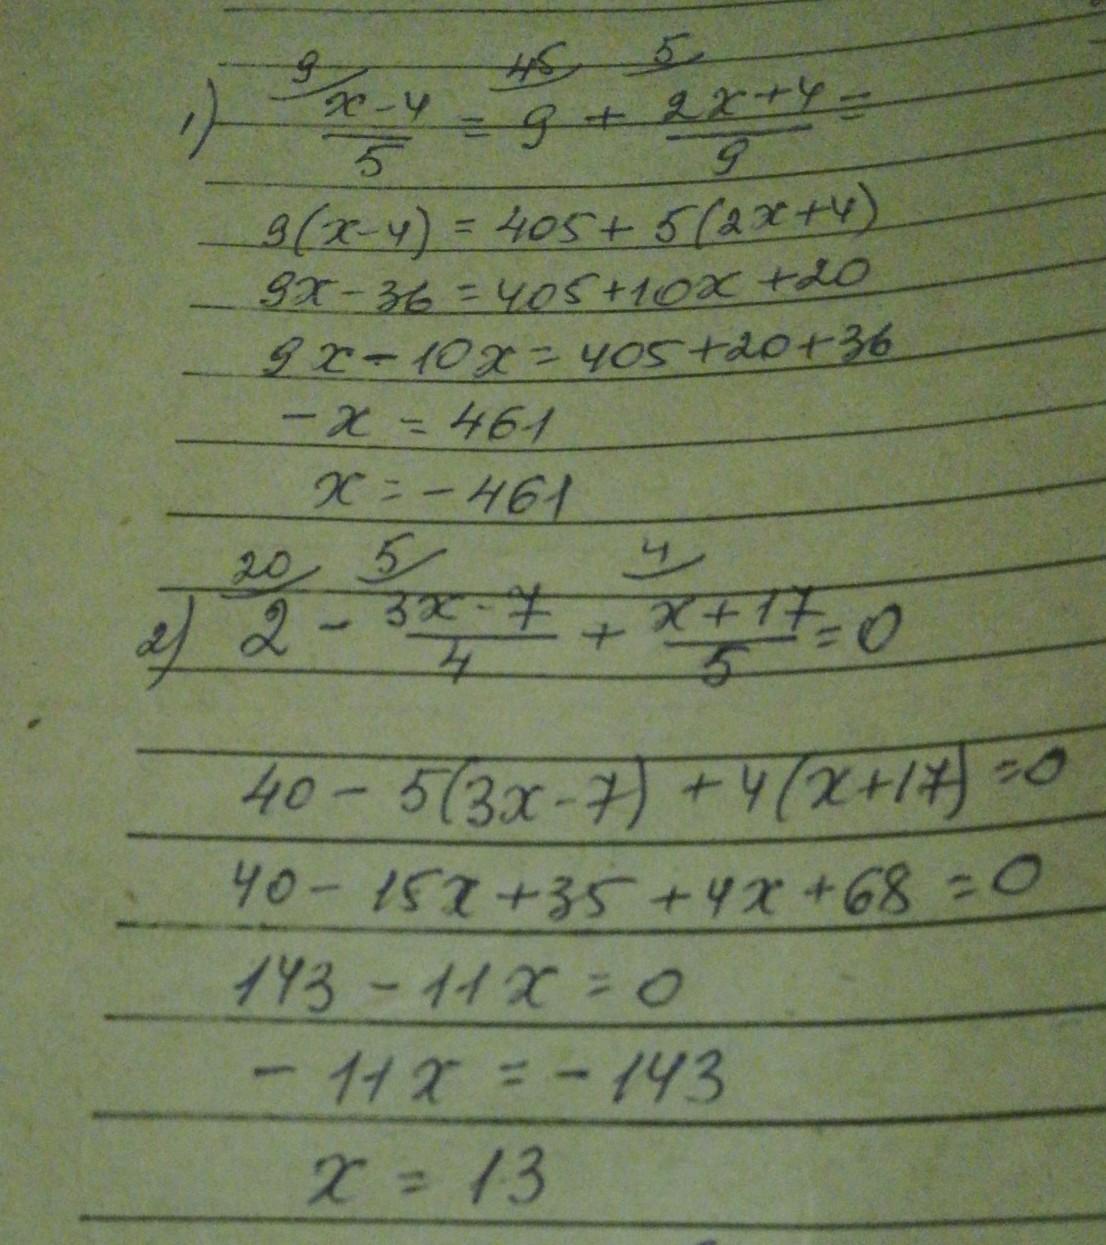 9 45 5
1) x-4/5 = 9 + 2x+4/9 =
9(x-4) = 405 + 5(2x+4)
9x-36 = 405+10x+20
9x-10x = 405+20+36
-x = 461
x = -461
20 5 4
2) 2 - 3x-7/4 + x+17/5 = 0
40 - 5(3x-7) + 4(x+17) = 0
40 - 15x + 35 + 4x + 68 = 0
143 - 11x = 0
-11x = -143
x = 13